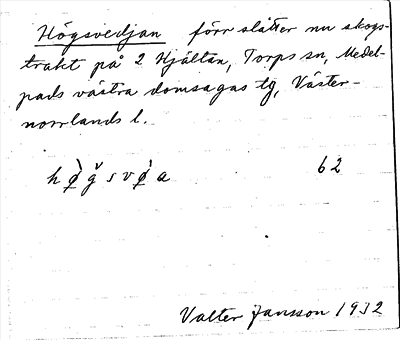 Högsvedjan förr slåtter nu skogs-
trakt på 2 Hjältan, Torps sn, Medel-
pads västra domsagas tg, Väster-
norrlands l.
62
Valter Jansson 1932